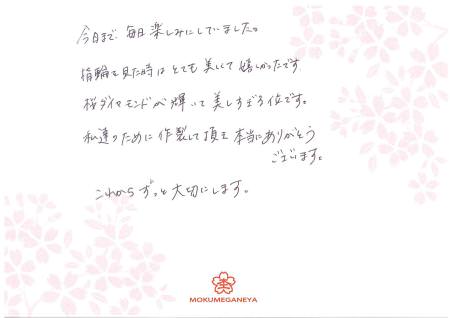 今日まで毎日楽しみにしていました。
指輪を見た時はとても美しくて嬉しかったです
桜ダイヤモンドが輝いて美しすぎる位です。
私達のために作製して頂き本当にありがとう
ございます。
これからずっと大切にします。
MOKUMEGANEYA